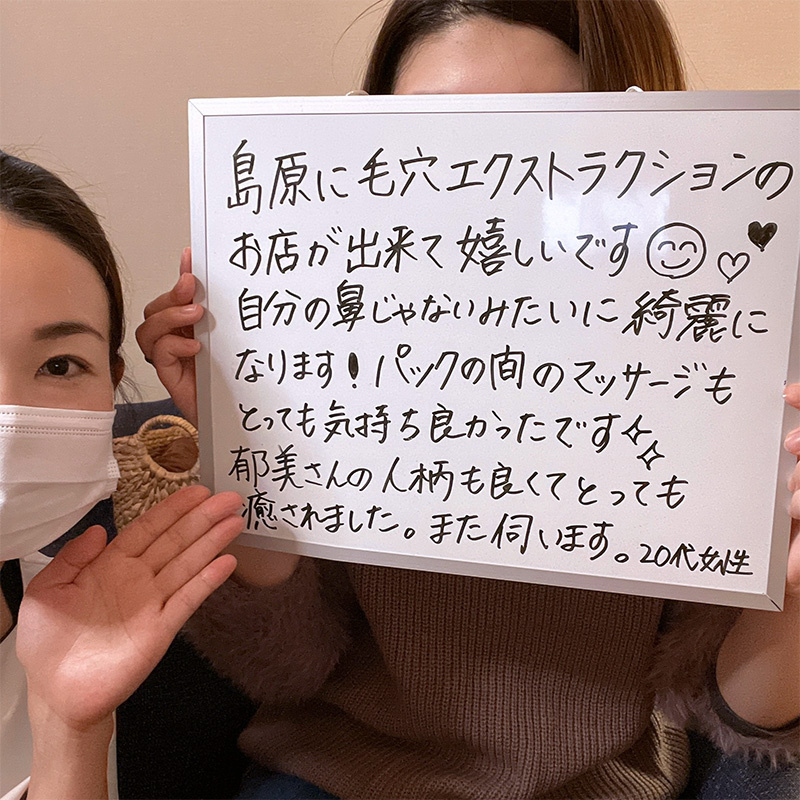 島原に毛穴エクストラクションの
お店が出来て嬉しいです
自分の鼻じゃないみたいに綺麗に
なります!パックの間のマッサージも
とっても気持ち良かったです
郁美さんの人柄も良くてとっても
癒されました。また伺います。20代女性